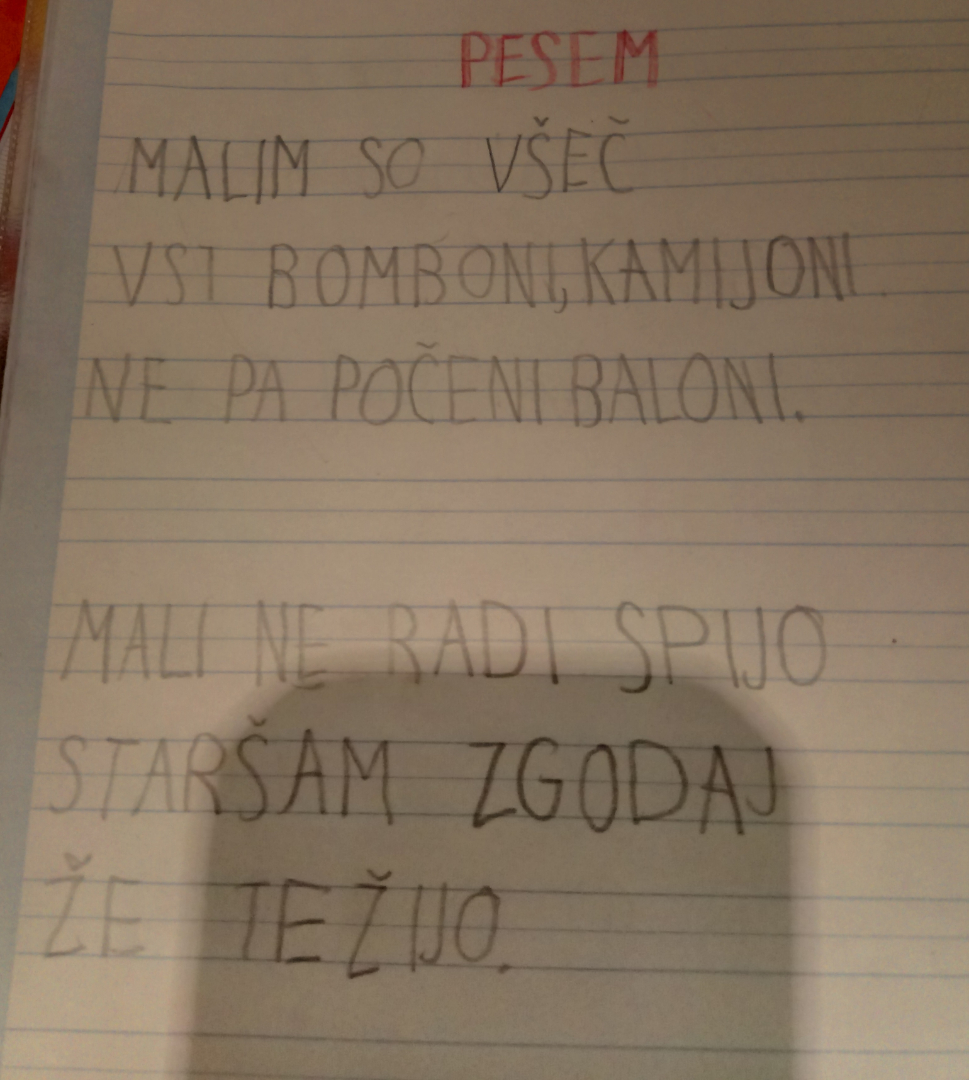 PESEM
MALIM SO VŠEČ
VSI BOMBONI, KAMIJONI
NE PA POČENI BALONI.
MALI NE RADI SPIJO
STARŠAM ZGODAJ
ŽE TEŽIJO.